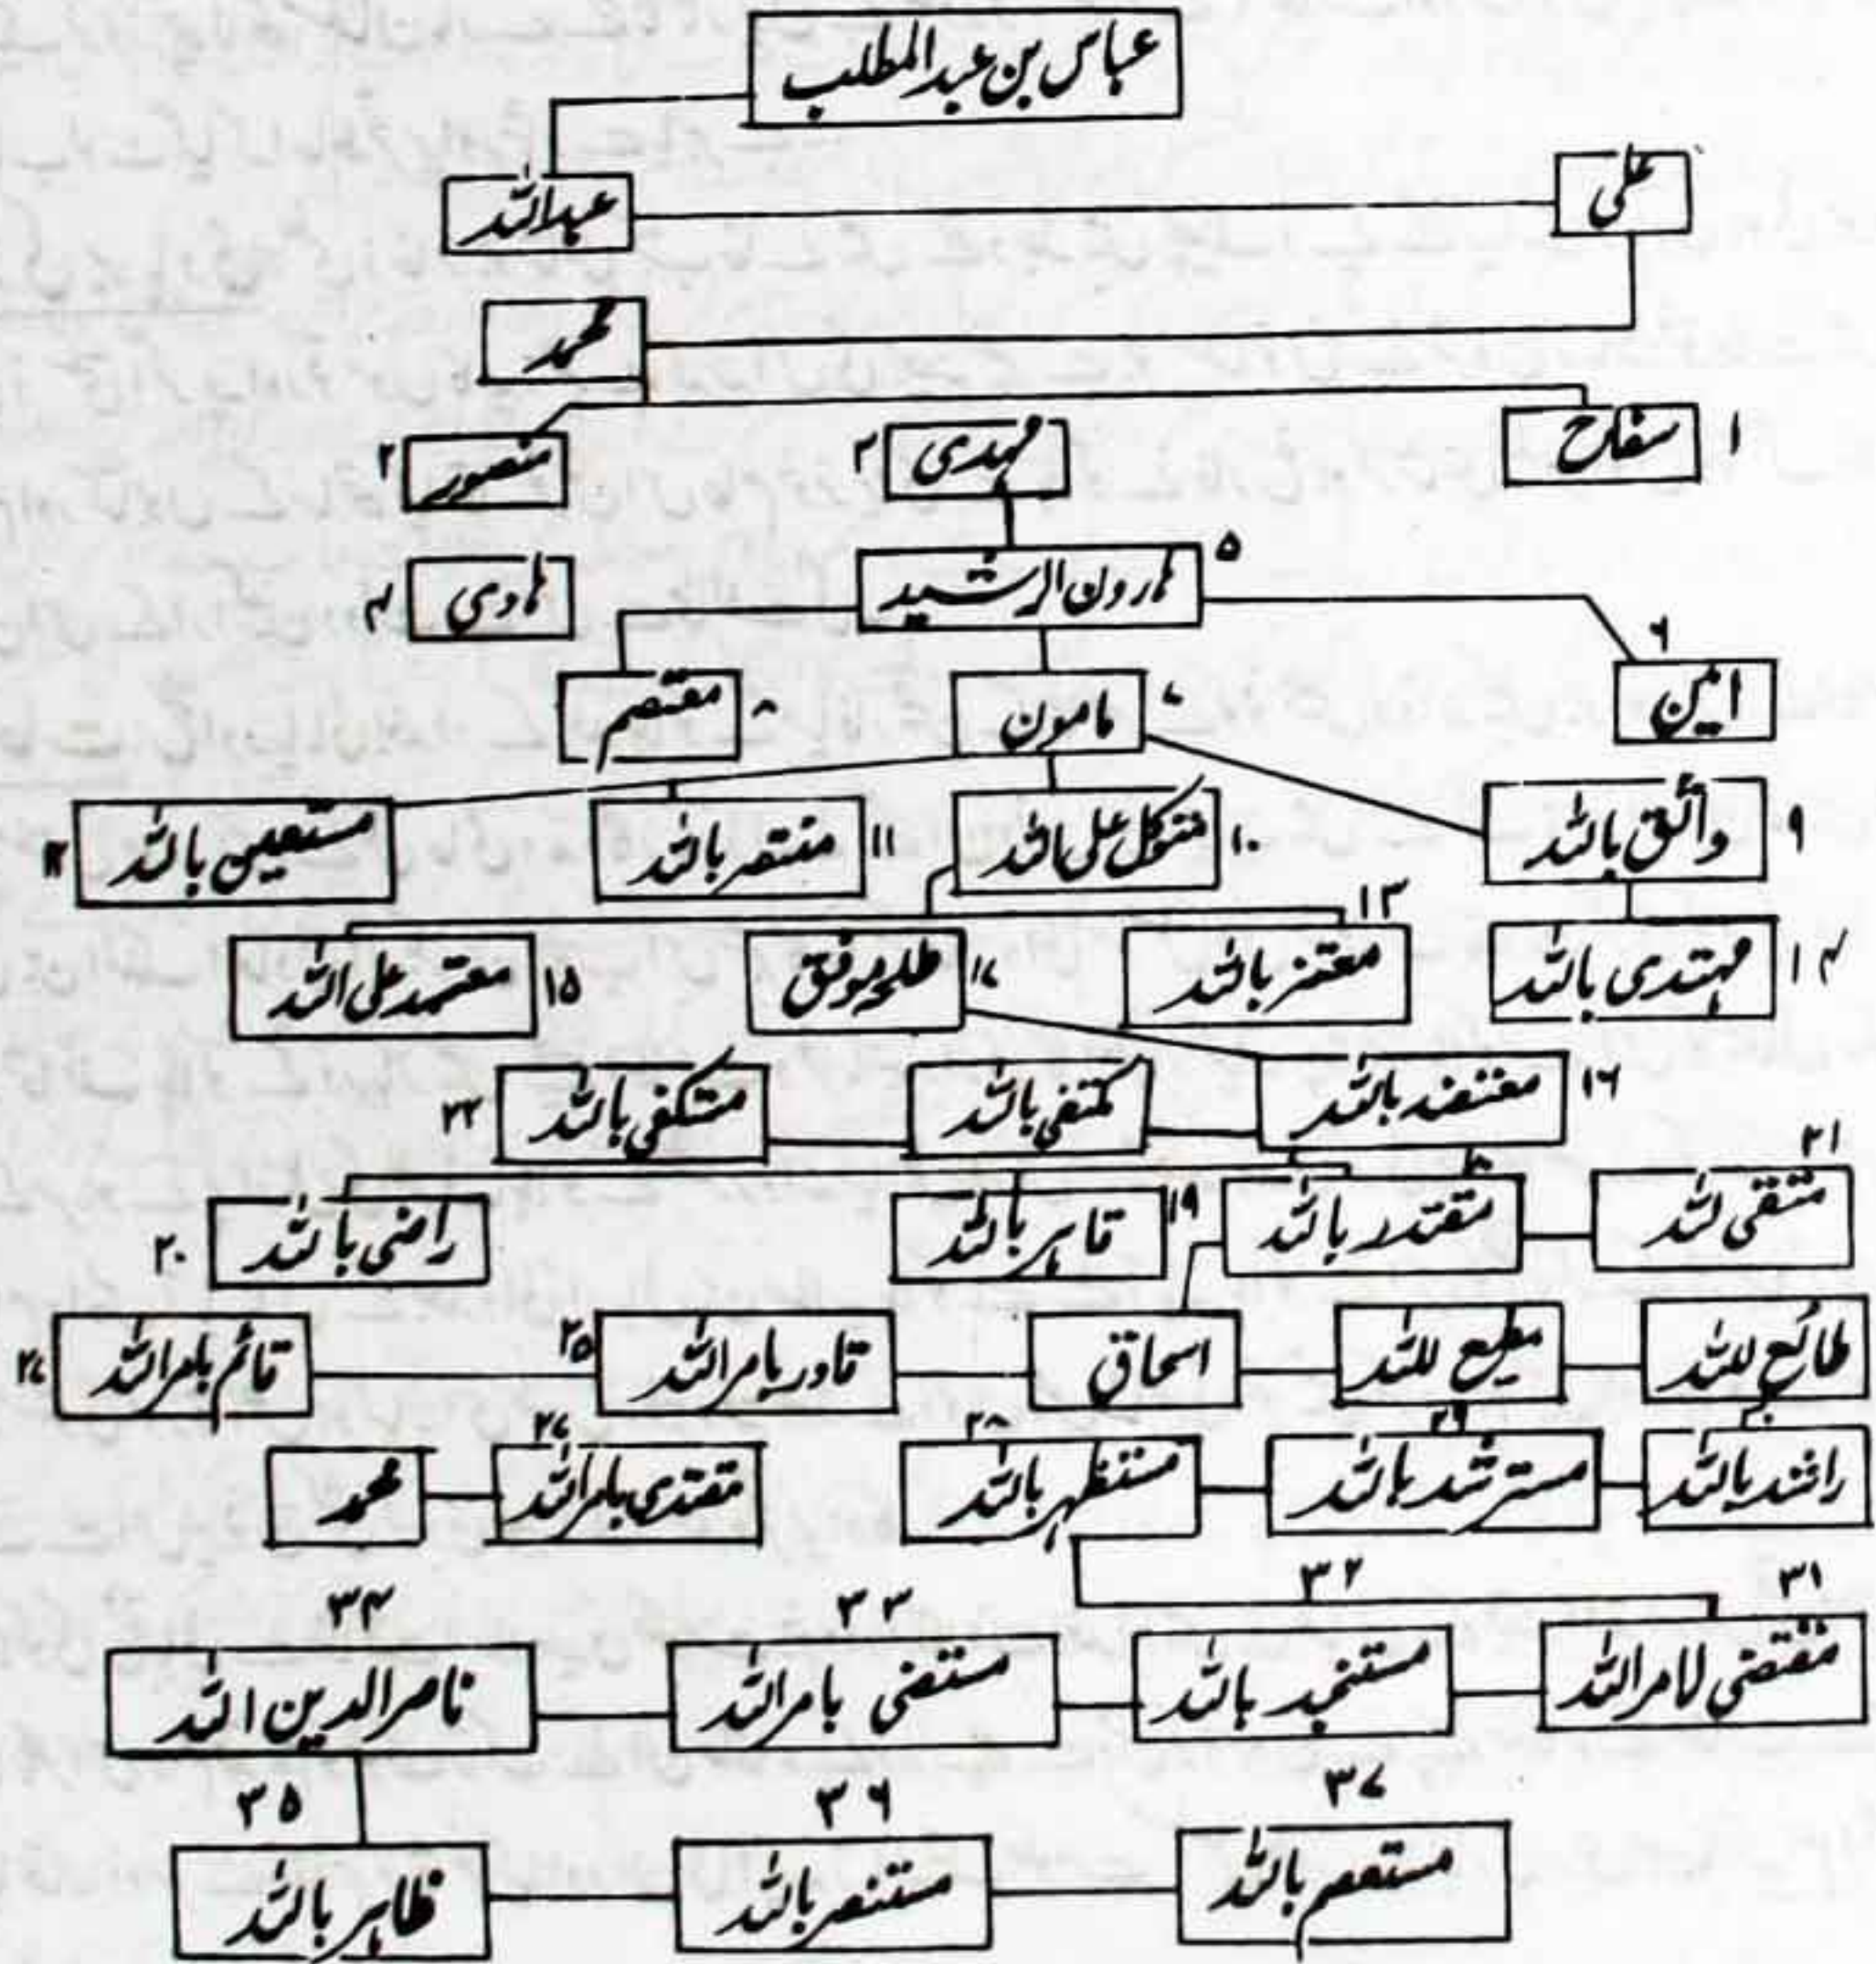 عباس بن عبدالمطلب
علی
عبداللہ
محمد
۱ سفاح
۳ مہدی
۲ منصور
۵ ہارون الرشید
۴ ہادی
۶ امین
۷ مامون
۸ معتصم
۹ واثق باللہ
۱۰ متوکل علی اللہ
۱۱ منتصر باللہ
۱۲ مستعین باللہ
۱۴ مہتدی باللہ
۱۳ معتز باللہ
۱۷ طلحہ موفق
۱۵ معتمد علی اللہ
۱۶ معتضد باللہ
مکتفی باللہ
۲۲ مستکفی باللہ
۲۱ متقی للہ
مقتدر باللہ
۱۹ قاہر باللہ
۲۰ راضی باللہ
طائع للہ
مطیع للہ
اسحاق
۲۵ قادر بامراللہ
۲۶ قائم بامراللہ
۳۰ راشد باللہ
۲۹ مسترشد باللہ
۲۸ مستظہر باللہ
۲۷ مقتدی بامراللہ
محمد
۳۱ مقتضی لامراللہ
۳۲ مستنجد باللہ
۳۳ مستضی بامراللہ
۳۴ ناصرالدین اللہ
۳۷ مستعصم باللہ
۳۶ مستنصر باللہ
۳۵ ظاہر باللہ